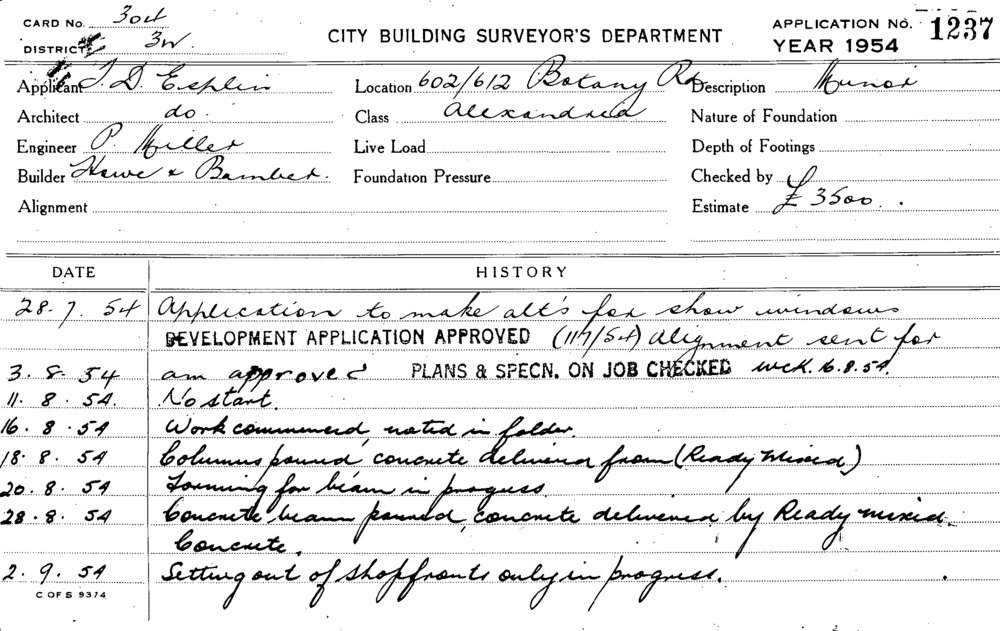 CARD No. 304
DISTRICT 3W
CITY BUILDING SURVEYOR'S DEPARTMENT
APPLICATION No. 1237
YEAR 1954
Applicant T. D. Esplin Location 602/612 Botany Rd Description
Architect do. Class Alexandria Nature of Foundation
Engineer P. Miller Live Load Depth of Footings
Builder Howe & Bamber. Foundation Pressure Checked by
Alignment Estimate £3500.
DATE HISTORY
28.7.54 Application to make alt's for show windows
DEVELOPMENT APPLICATION APPROVED (117/54) Alignment sent for
3.8.54 am approved PLANS & SPECN. ON JOB CHECKED wck. 16.8.54.
11.8.54. No start.
16.8.54 Work commenced, noted in folder.
18.8.54 Columns poured, concrete delivered from (Ready Mixed)
20.8.54 Forming for beam in progress
28.8.54 Concrete beam poured, concrete delivered by Ready mixed
Concrete.
2.9.54 Setting out of shopfronts only in progress.
C OF S 9374